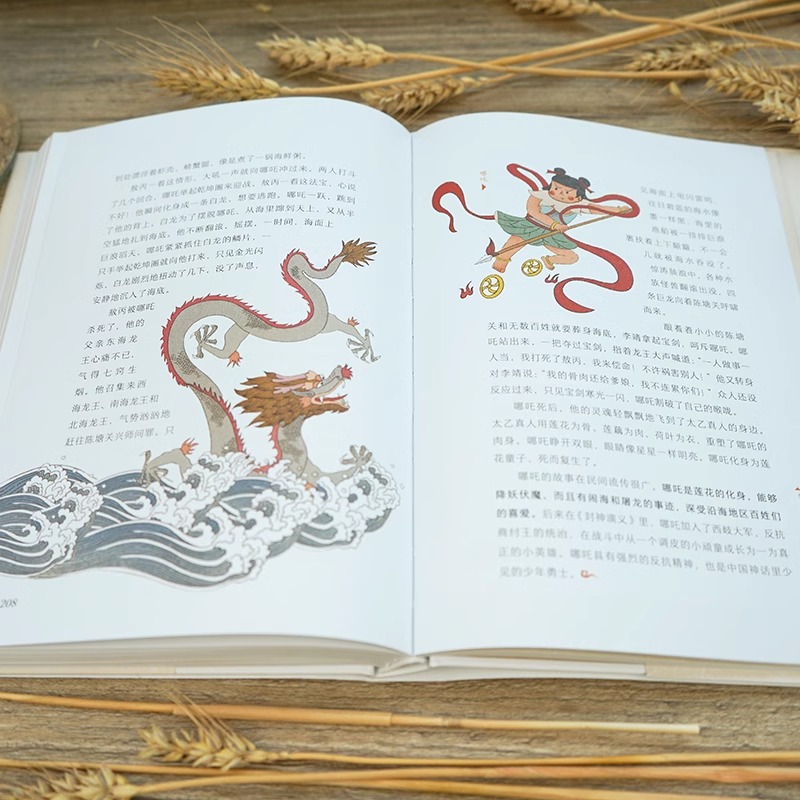 到处漂浮着虾壳、螃蟹腿，像是煮了一锅海鲜粥。
敖丙一看这情形，大吼一声就向哪吒冲过来，两人打斗
了几个回合，哪吒举起乾坤圈来迎战。敖丙一看这法宝，心说
不好！他瞬间化身成一条白龙，想要逃跑。哪吒一跃，跳到
了他的背上，白龙为了摆脱哪吒，从海里蹿到天上，又从半
空猛地扎到海底。他不断翻滚、摇摆，一时间，海面上
巨浪滔天。哪吒紧紧抓住白龙的鳞片，
只手举起乾坤圈就向他打来，只见金光闪
烁，白龙剧烈地扭动了几下，没了声息，
安静地沉入了海底。
敖丙被哪吒
杀死了，他的
父亲东海龙
王心痛不已，
气得七窍生
烟。他召集来西
海龙王、南海龙王和
北海龙王，气势汹汹地
赶往陈塘关兴师问罪。只
208
哪吒
见海面上电闪雷鸣，
往日蔚蓝的海水像
墨一样黑，海里的
渔船被一排排巨浪
裹挟着上下翻腾，不一会
儿就被海水吞没了。
惊涛骇浪中，各种水
族怪兽翻滚出没，四
条巨龙向着陈塘关呼啸
而来。
眼看着小小的陈塘
关和无数百姓就要葬身海底，李靖拿起宝剑，呵斥哪吒。哪
吒站出来，一把夺过宝剑，指着龙王大声喊道：“一人做事一
人当，我打死了敖丙，我来偿命！不许祸害别人！”他又转身
对李靖说：“我的骨肉还给爹娘，我不连累你们！”众人还没
反应过来，只见宝剑寒光一闪，哪吒割破了自己的喉咙。
哪吒死后，他的灵魂轻飘飘地飞到了太乙真人的身边。
太乙真人用莲花为骨、莲藕为肉、荷叶为衣，重塑了哪吒的
肉身。哪吒睁开双眼，眼睛像星星一样明亮。哪吒化身为莲
花童子，死而复生了。
哪吒的故事在民间流传很广。哪吒是莲花的化身，能够
降妖伏魔，而且有闹海和屠龙的事迹，深受沿海地区百姓们
的喜爱。后来在《封神演义》里，哪吒加入了西岐大军，反抗
商纣王的统治，在战斗中从一个调皮的小顽童成长为一为真
正的小英雄。哪吒具有强烈的反抗精神，也是中国神话里少
见的少年勇士。